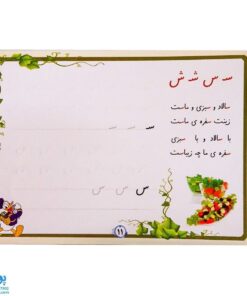 سـ س شـ ش
سالاد و سبزی و ماست
زینت سفره ی ماست
با سالاد و با سبزی
سفره ی ما چه زیباست
سـ سـ سـ
س س س
۱۱